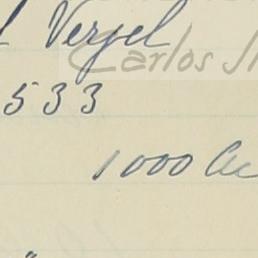 l Vergel
Carlos
533
1000